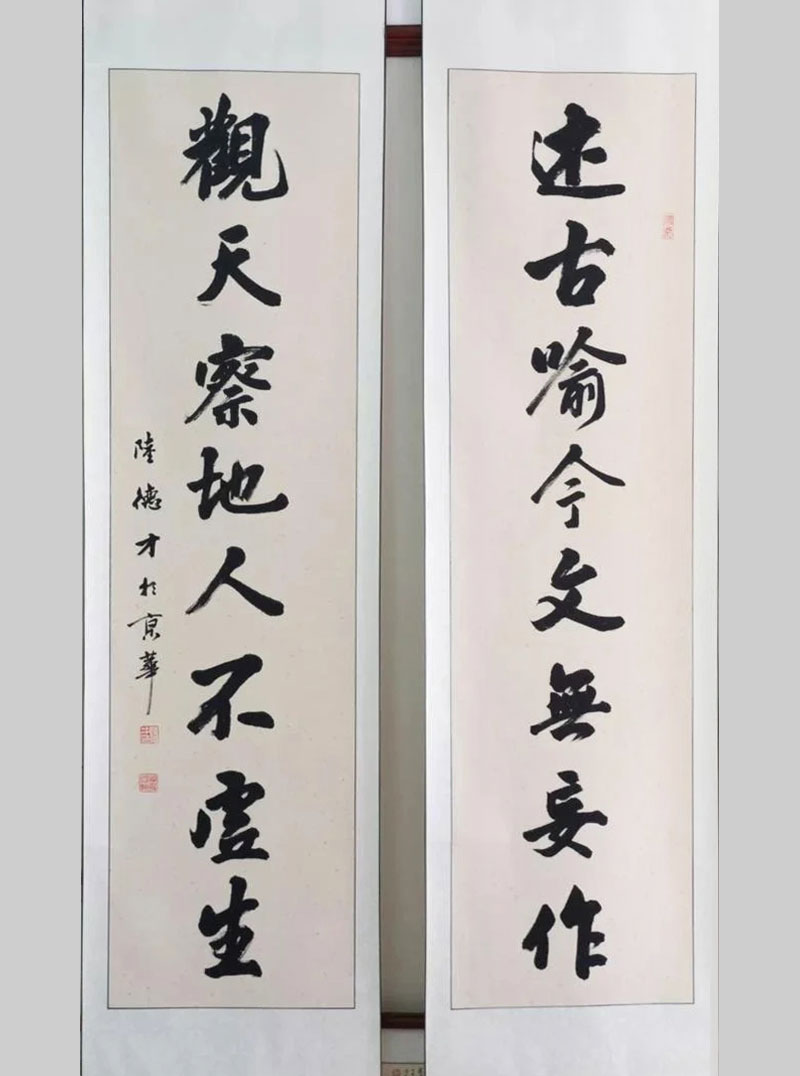 述古喻今文無妄作
觀天察地人不虛生
陸德才於京華